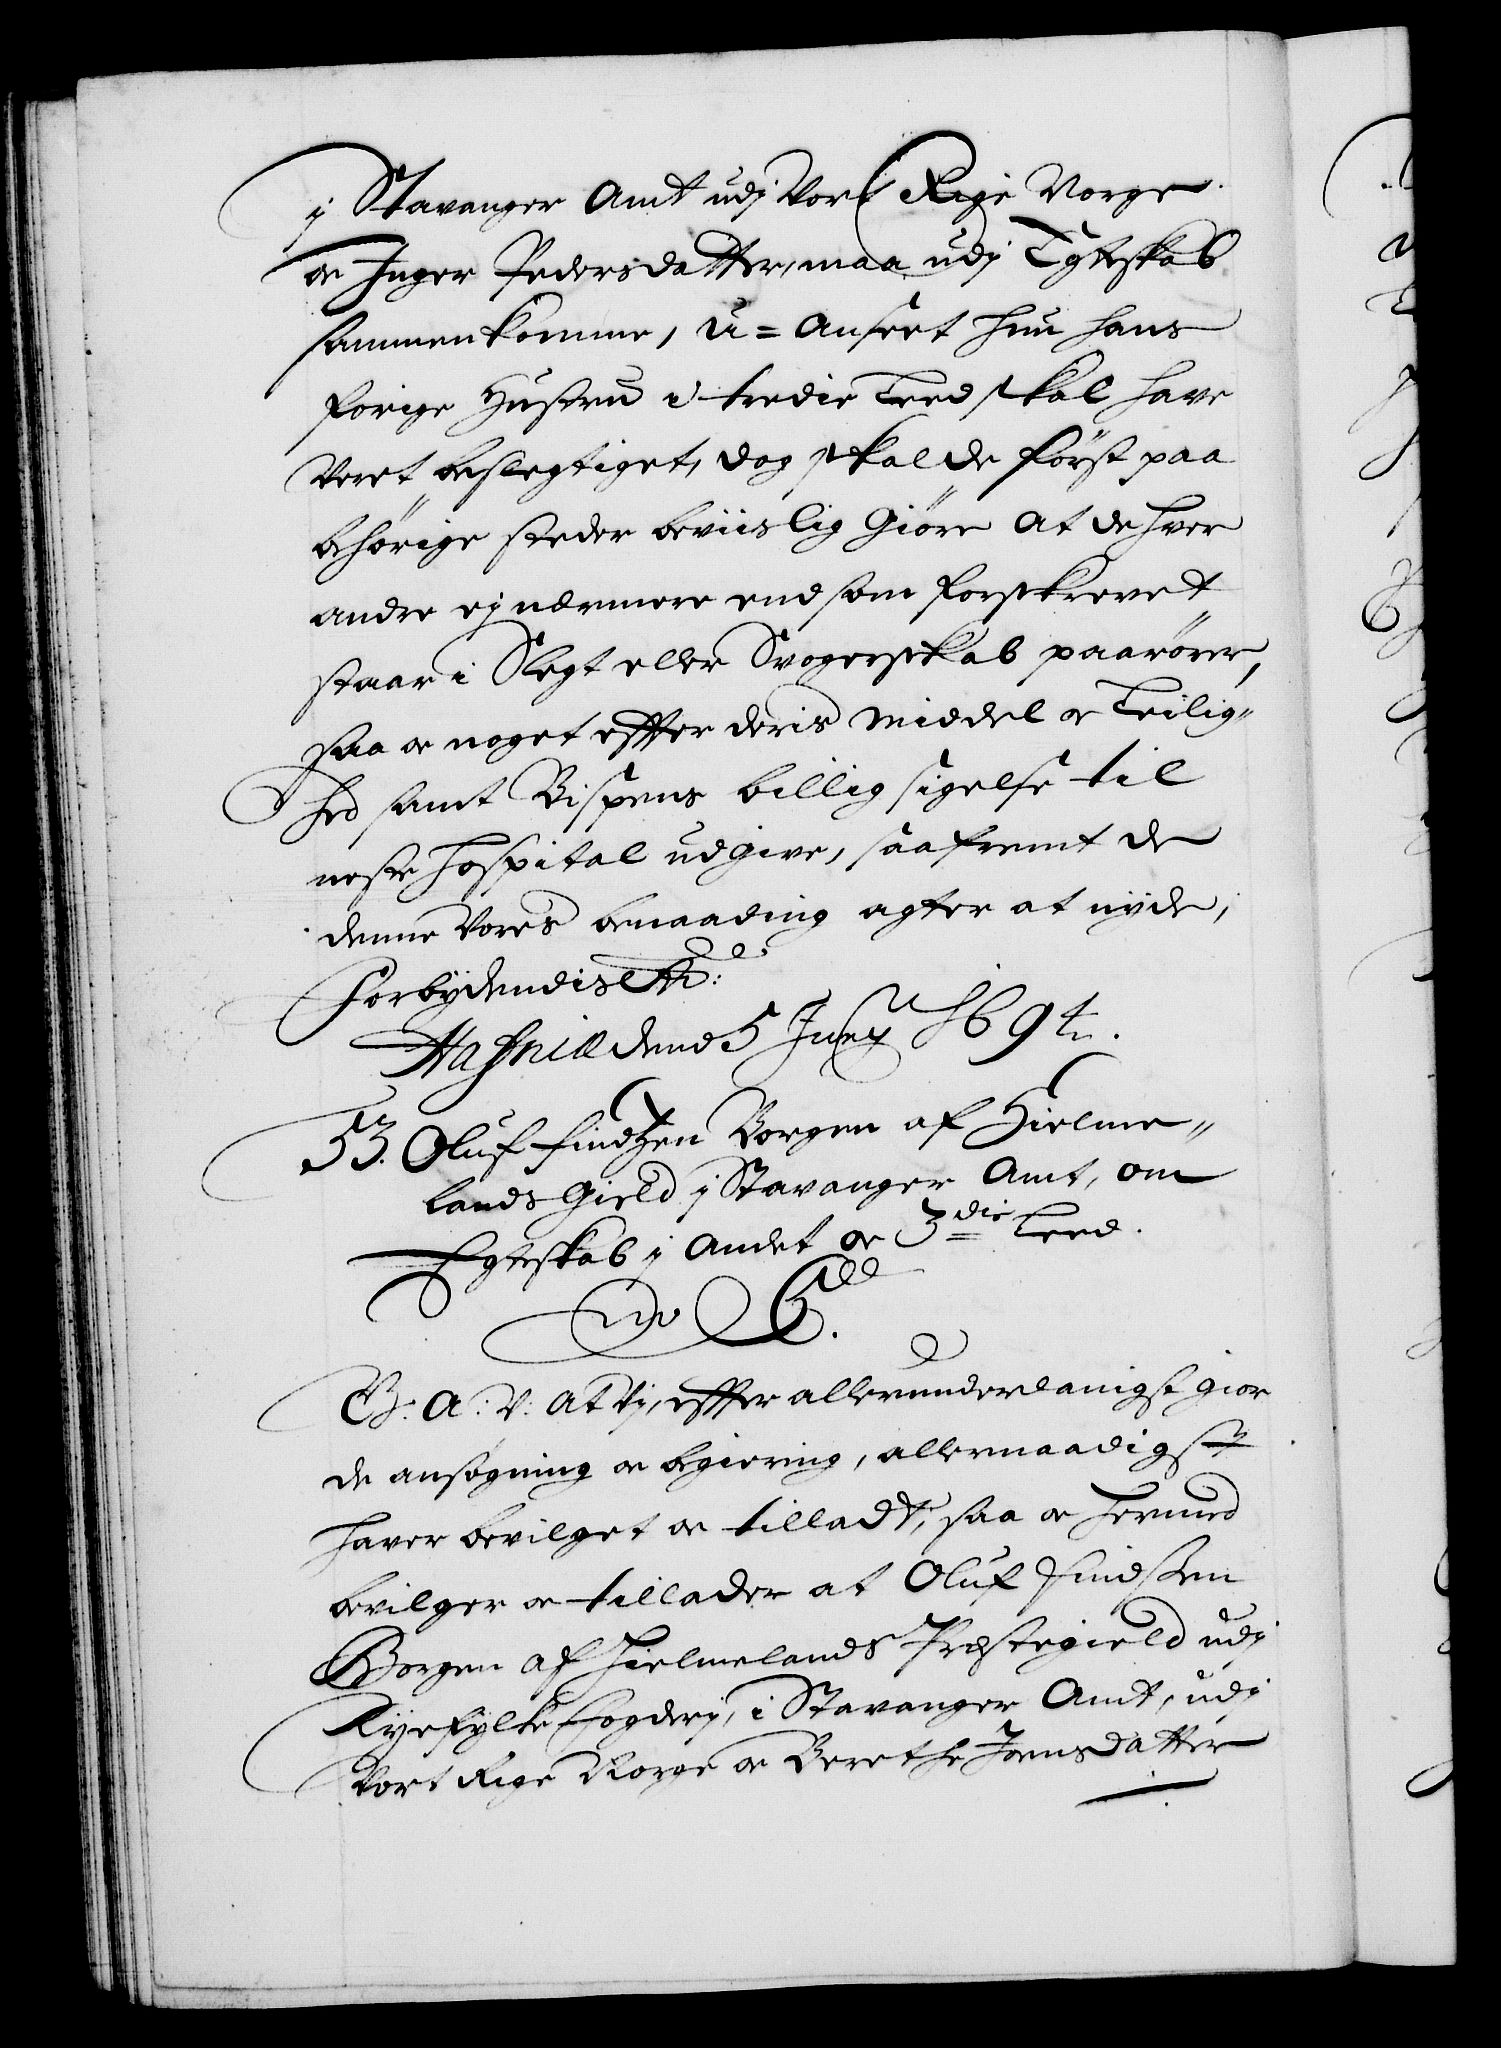 j Stavanger Amt udj Vort Rige Norge
oc Inger Pedersdatter, maa udj Egteskab
sammenkomme, u=anseet hun hans
forige Hustru i tredie Leed skal have
veret beslegtiget, dog skal de först paa
behörige steder beviislig giöre at de hver
andre ej nærmere end som forskrevet
staar i Slegt eller Svogerskab paarörer,
saa oc noget effter deris middel oc Leilig"
hed samt Bispens billig sigelse til
neste Hospital udgive, saafremt de
denne Vores benaading agter at nyde,
Forbydendis etc:
Hafniæ dend 5 Junij 1694.
53. Oluf findtzen Borgen af Hielme"
lands gield j Stavanger Amt, om
Egteskab j Andet oc 3die Leed.
C5.
G: A: V: at Vj, effter allerunderdanigst gior
de ansøgning oc begiering, allernaadigst
haver bevilget oc tilladt, saa oc hermed
bevilger oc tillader at Oluf Findsen
Borgen af Hielmelands Præstegield udj
Ryefylke Fogderj, i Stavanger Amt, udj
Vort Rige Norge oc Berethe Joensdatter